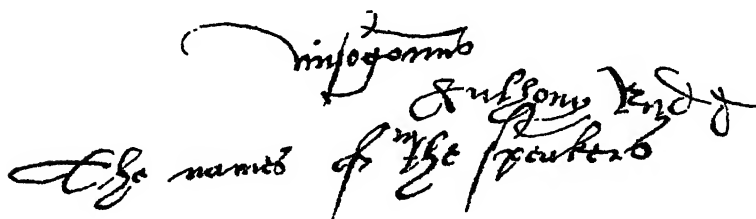 Misogonus
Anthony Rudd
The names of the speakers